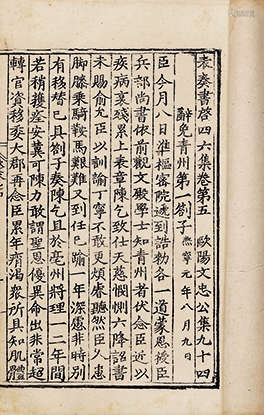 表奏書啓四六集卷第五 歐陽文忠公集九十四
辭免青州第一劄子 熙寧元年八月九日
臣今月八日準樞密院遞到誥勑各一道蒙恩授臣
兵部尚書依前觀文殿學士知青州者伏念臣近以
疾病衰殘累上表章陳乞致仕天慈憫惻六降詔書
未賜俞允臣以訓諭丁寧不敢更煩睿聽然臣久患
脚膝乘騎鞍馬艱難又到任已踰一年深慮非時別
有移替已具劄子奏陳乞且於亳州將理一二年間
若稍獲痊安冀可陳力敢謂聖恩優異命出非常超
轉官資移委大郡再念臣累年痟渴衆所具知肌體